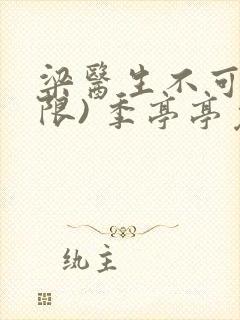 梁醫生不可
限)季亭亭
紈主